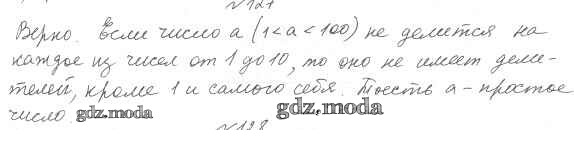 №127
Верно. Если число a (1 < a < 100) не делится на
каждое из чисел от 1 до 10, то оно не имеет дели-
телей, кроме 1 и самого себя. Тоесть a - простое
число. gdz.moda gdz.moda
№128